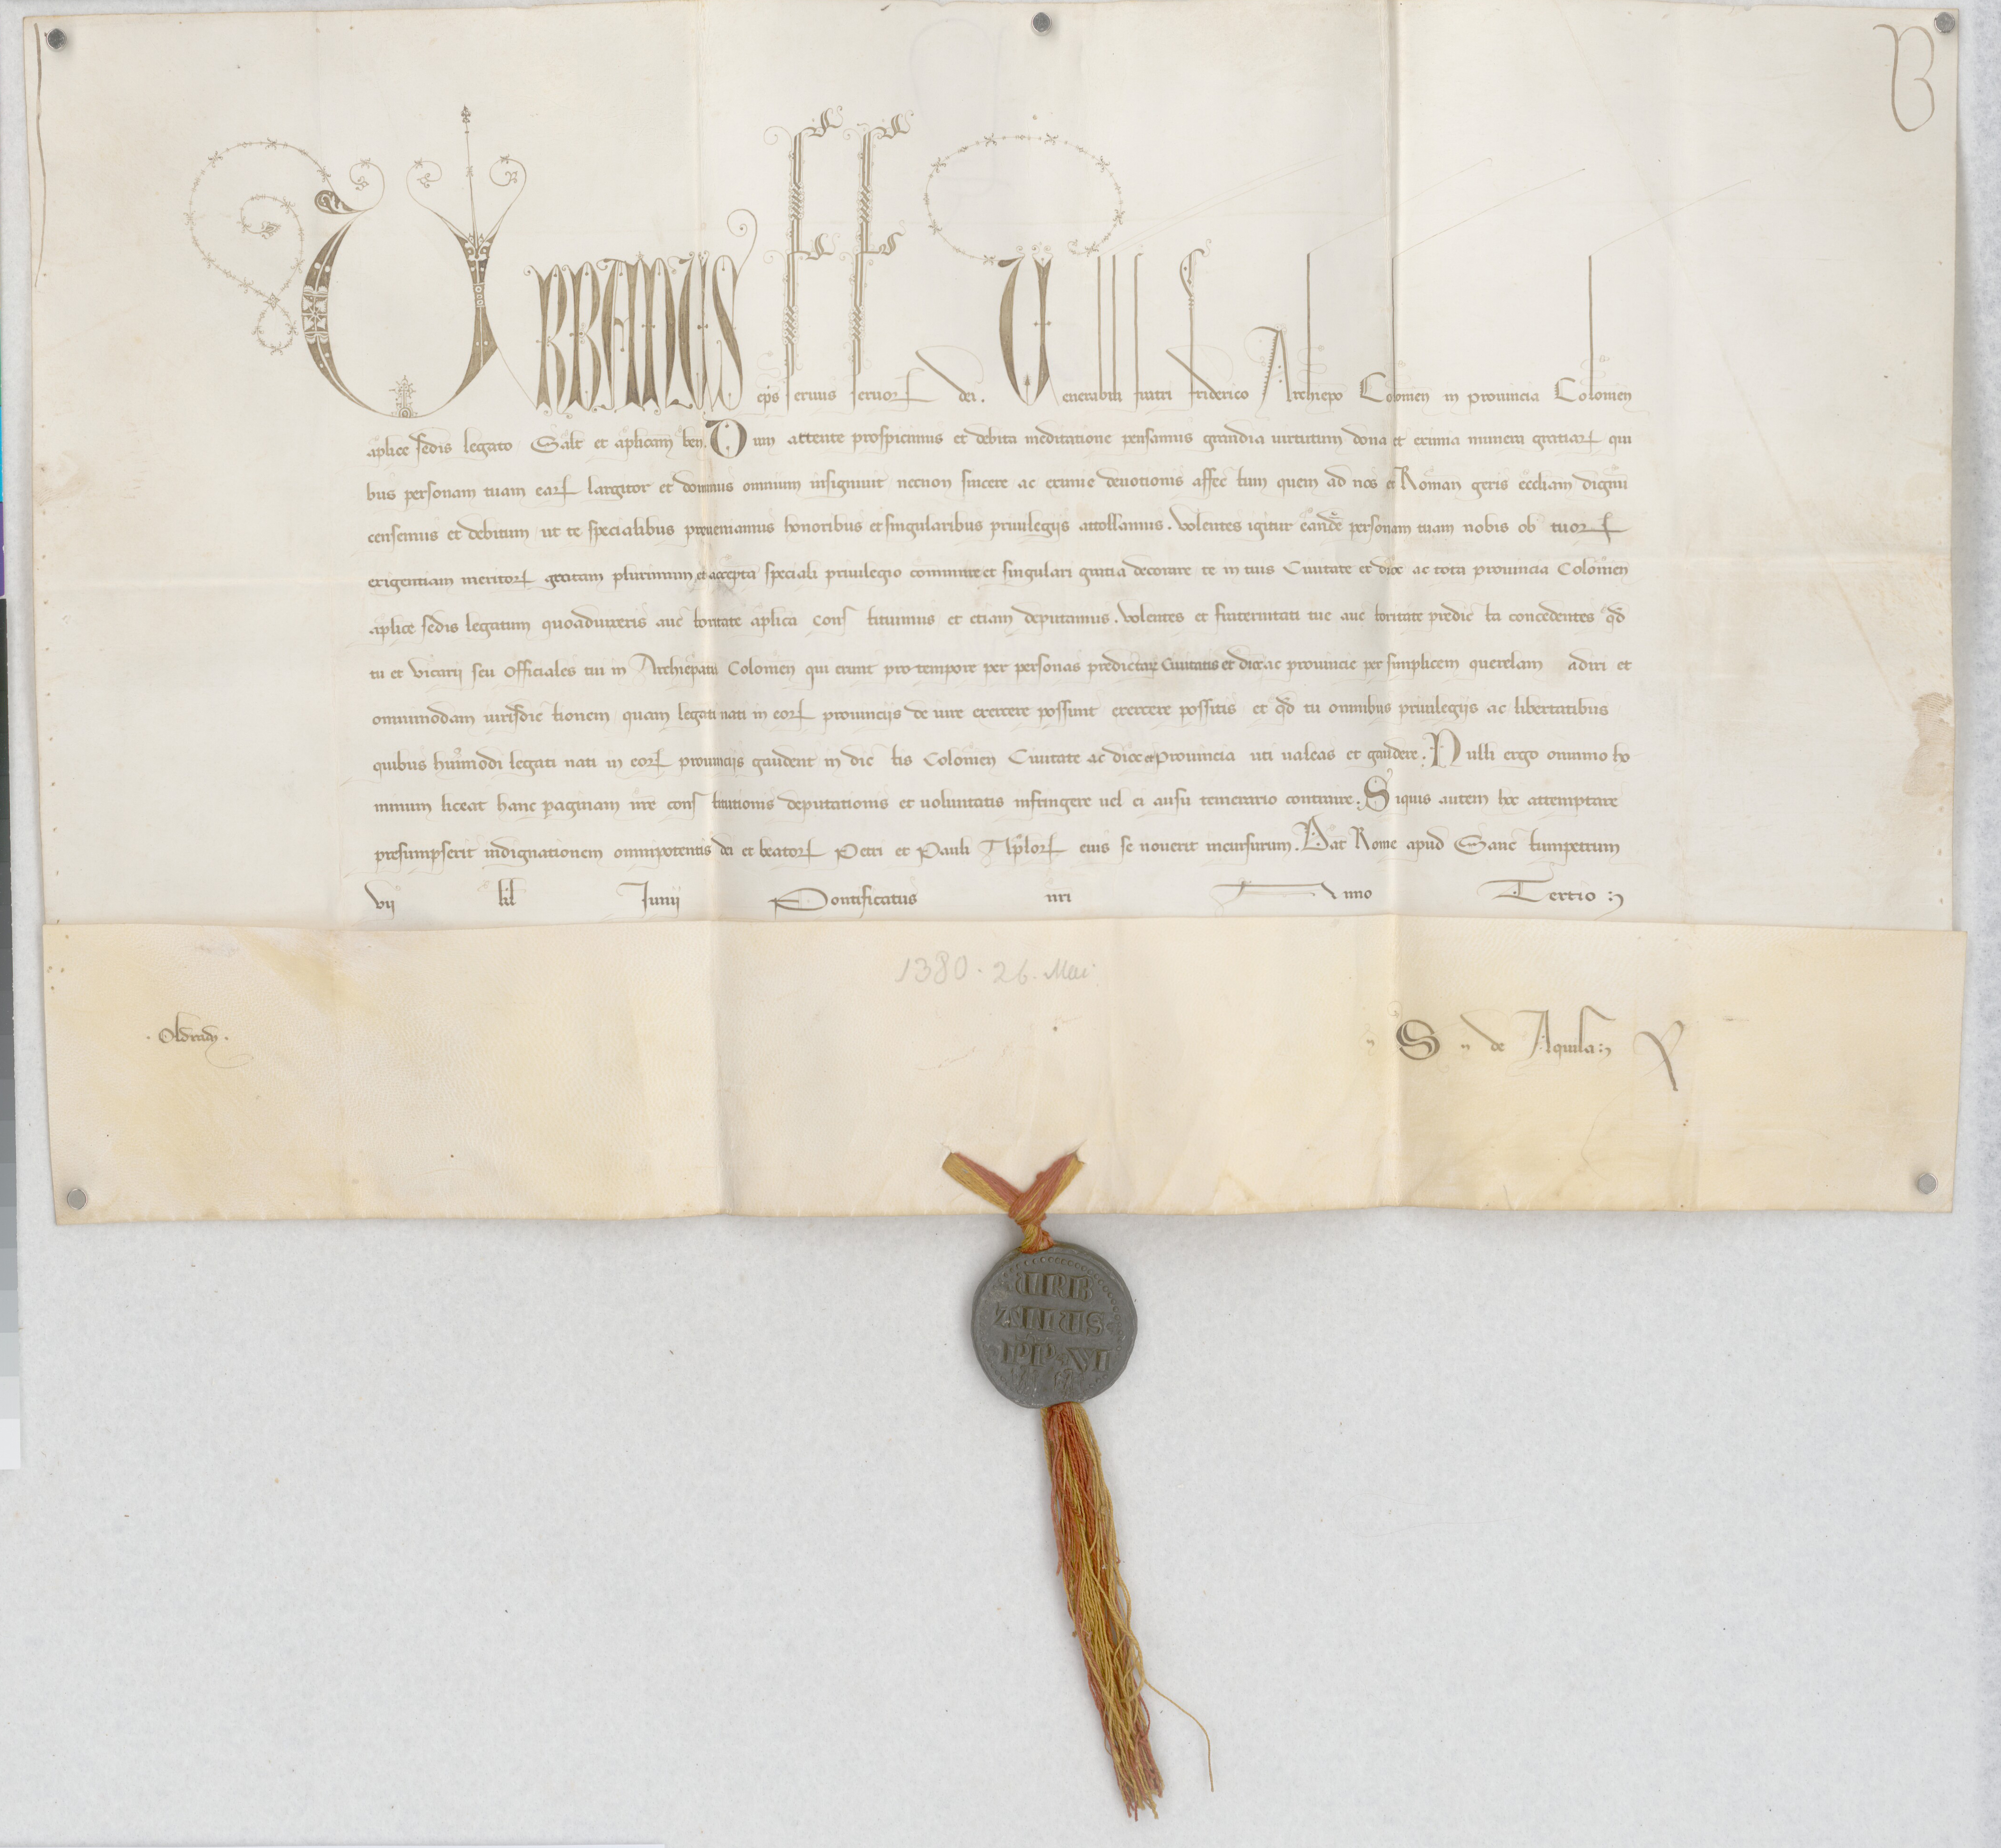 B
URBANUS ep̄s seruus seruorꝝ dei. Uenerabili fratri friderico Archiep̄o Colonien̄ in prouincia Colonien̄
aplice sedis legato Salt̄ et aplicam ben̄. Dum attente prospicimus et debita meditatione pensamus grandia uirtutum dona et eximia munera gratiarꝝ qui
bus personam tuam earꝝ largitor et dominus omnium insigniuit necnon sincere ac eximie deuotionis affectum quem ad nos et Roman̄ geris eccliam dignū
censemus et debitum ut te specialibus preueniamus honoribus et singularibus priuilegijs attollamus. Volentes igitur eandē personam tuam nobis ob tuorꝝ
exigentiam meritorꝝ gratam plurimum et accepta speciali priuilegio communire et singulari gratia decorare te in tuis Ciuitate et dioc̄ ac tota prouincia Colonien̄
aplice sedis legatum quoad uixeris auctoritate aplica constituimus et etiam deputamus. Volentes et fraternitati tue auctoritate predicta concedentes qd̄
tu et vicarij seu Officiales tui in Archiepatu Colonien̄ qui erunt pro tempore per personas predictarꝝ Ciuitatis et dioc̄ ac prouincie per simplicem querelam adiri et
omnimodam iurisdictionem quam legati nati in eorꝝ prouincijs de iure exercere possunt exercere possitis et qd̄ tu omnibus priuilegijs ac libertatibus
quibus huiūmodi legati nati in eorꝝ prouincijs gaudent in dictis Colonien̄ Ciuitate ac dioc̄ et Prouincia uti ualeas et gaudere. Nulli ergo omnino ho
minum liceat hanc paginam nr̄e constitutionis deputationis et uoluntatis infringere uel ei ausu temerario contraire. Siquis autem hoc attemptare
presumpserit indignationem omnipotentis dei et beatorꝝ Petri et Pauli Aplorꝝ eius se nouerit incursurum. Dat̄ Rome apud Sanctumpetrum
vij kl̄ Junij Pontificatus nr̄i Anno Tertio
1380. 26. Mai
S de Aquila
URB
ANUS
PP VI